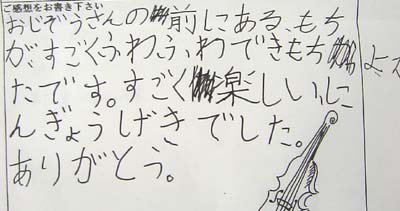 ご感想をお書き下さい
おじぞうさんの前にある、もち
が、すごくふわふわできもちよス
たです。すごく楽しい、に
んぎょうげきでした。
ありがとう。